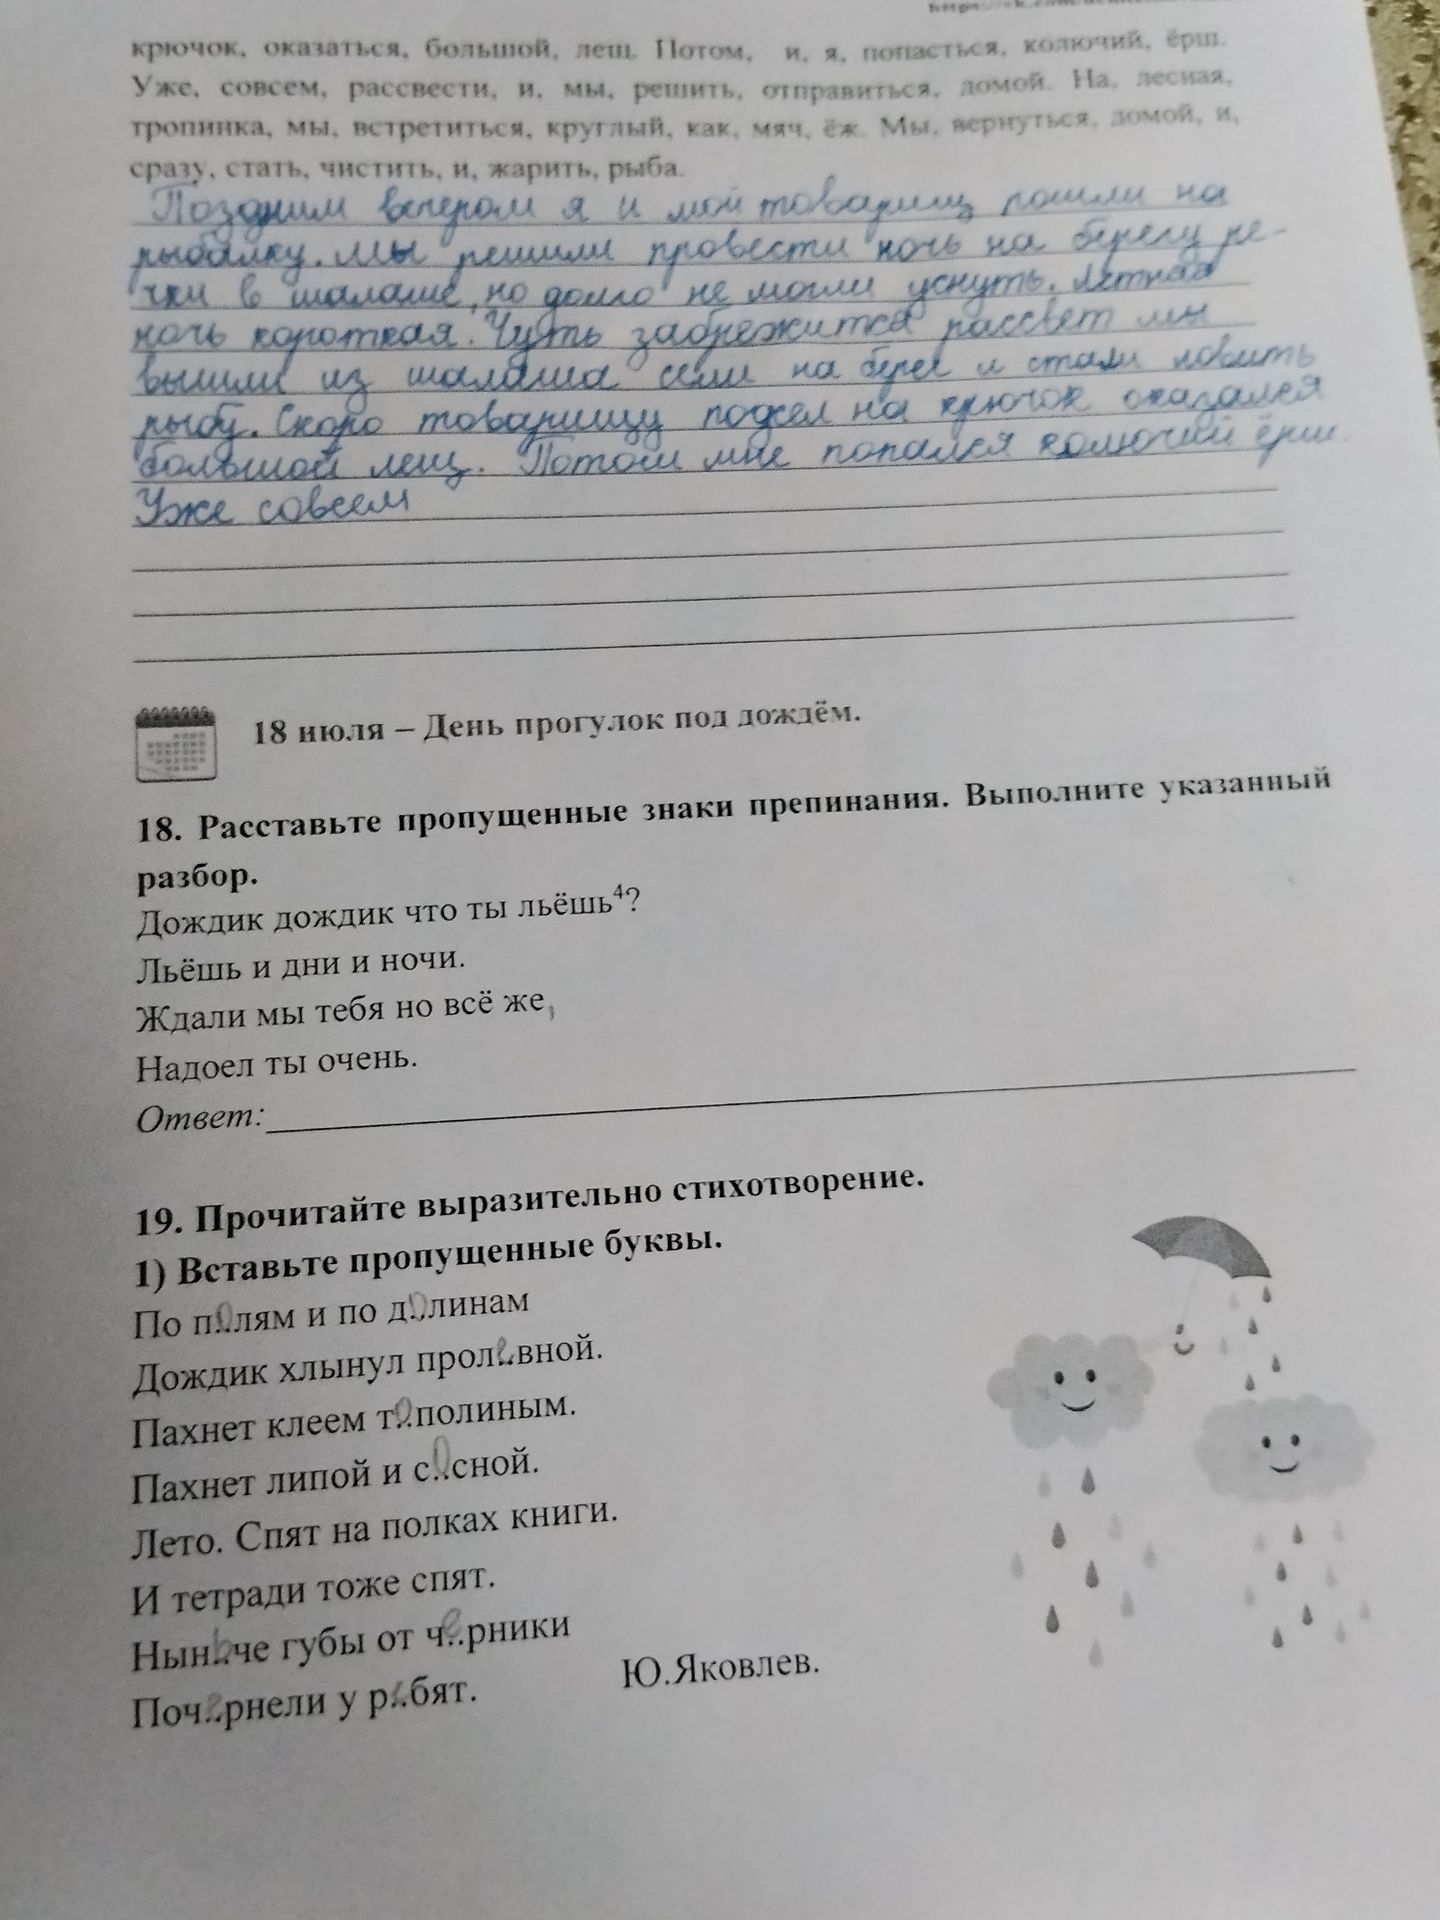 крючок, оказаться, большой, лещ. Потом, и, я, попасться, колючий, ёрш.
Уже, совсем, рассвести, и, мы, решить, отправиться, домой. На, лесная,
тропинка, мы, встретиться, круглый, как, мяч, ёж. Мы, вернуться, домой, и,
сразу, стать, чистить, и, жарить, рыба.
Поздним вечером я и мой товарищ пошли на
рыбалку. Мы решили провести ночь на берегу ре-
чки в шалаше, но долго не могли уснуть. Летная
ночь короткая. Чуть забрежитка рассвет мы
вышли из шалаша сели на берег и стали ловить
рыбу. Скоро товарищу на крючок оказался
большой лещ. Потом мне попался колючий ёрш.
Уже совсем
18 июля – День прогулок под дождём.
18. Расставьте пропущенные знаки препинания. Выполните указанный
разбор.
Дождик дождик что ты льёшь⁴?
Льёшь и дни и ночи.
Ждали мы тебя но всё же,
Надоел ты очень.
Ответ:
19. Прочитайте выразительно стихотворение.
1) Вставьте пропущенные буквы.
По п..олям и по д..олинам
Дождик хлынул прол..ивной.
Пахнет клеем т..ополиным.
Пахнет липой и с..осной.
Лето. Спят на полках книги.
И тетради тоже спят.
Нын..че губы от ч..ерники
Поч..ернели у р..ебят.
Ю.Яковлев.